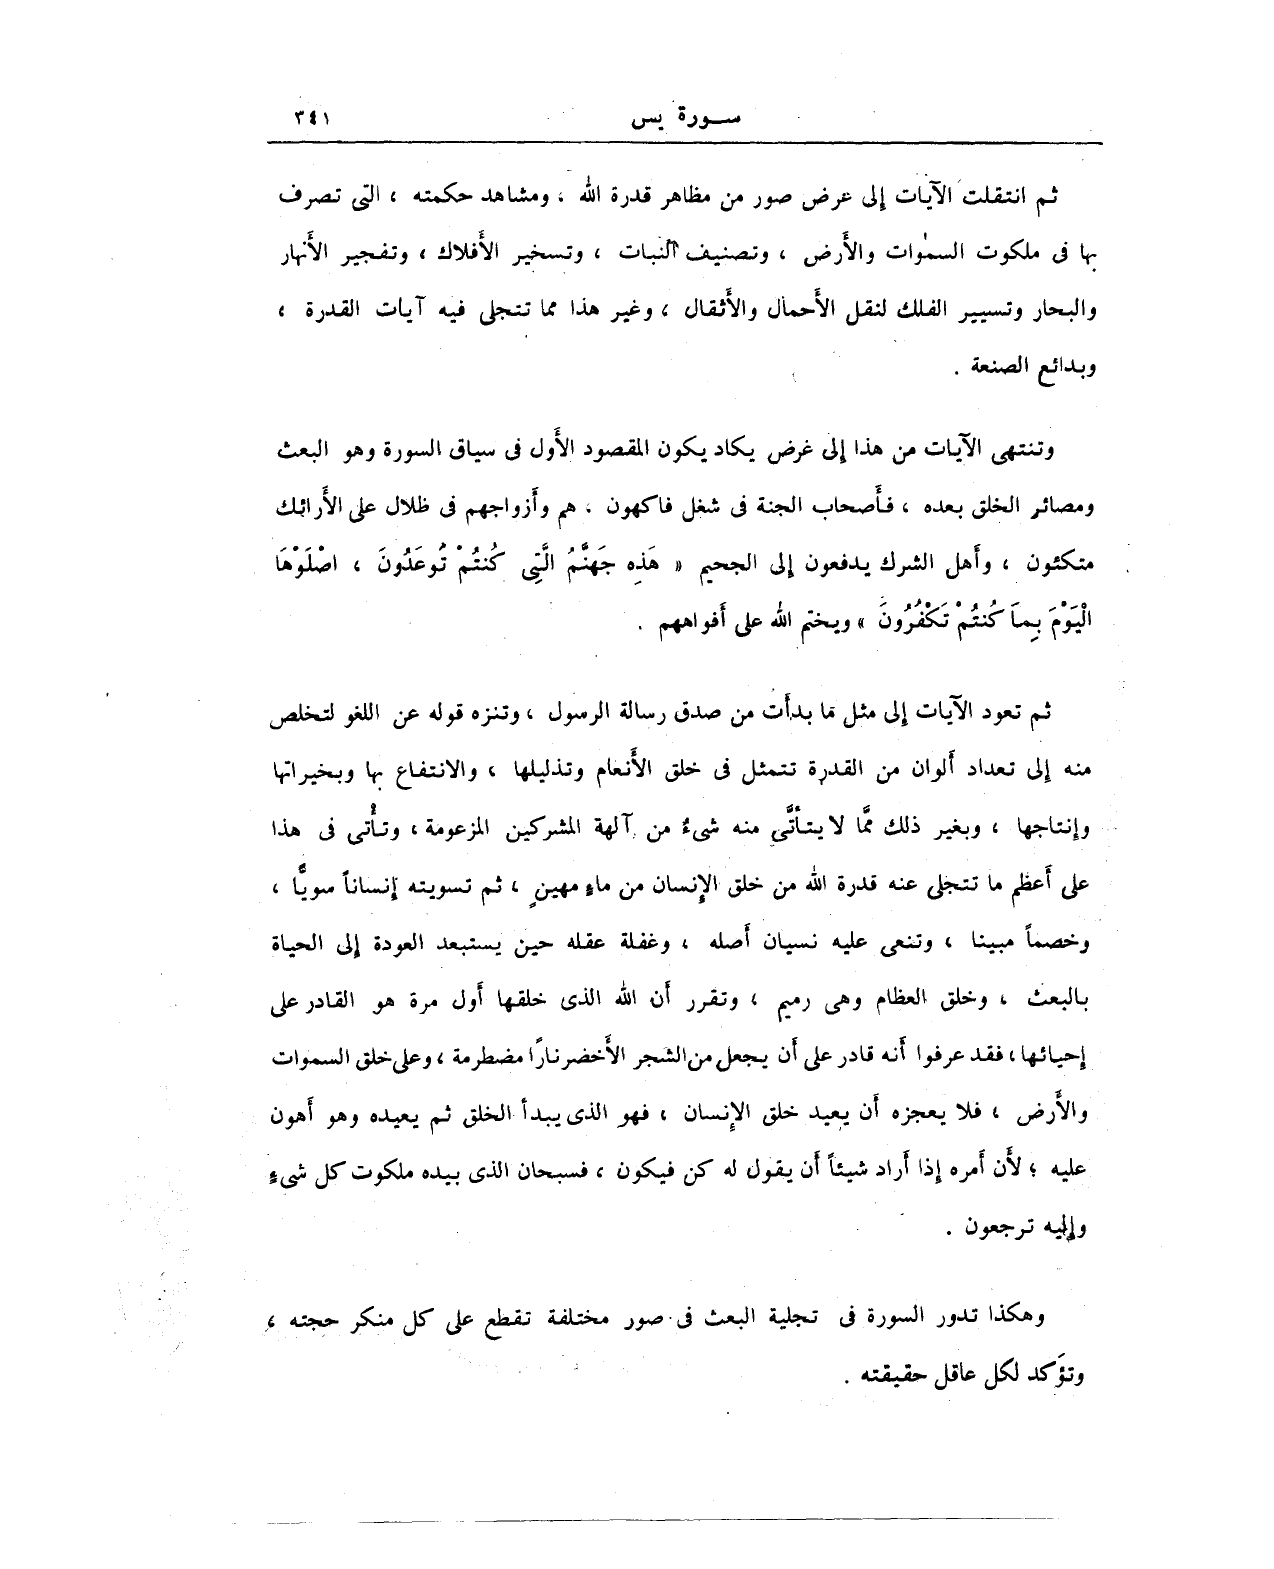 سـورة يس ٣٤١
ثم انتقلت الآيات إلى عرض صور من مظاهر قدرة الله ، ومشاهد حكمته ، التى تصرف
بها فى ملكوت السمٰوات والأَرض ، وتصنيف النبات ، وتسخير الأَفلاك ، وتفجير الأَنهار
والبحار وتسيير الفلك لنقل الأَحمال والأَثقال ، وغير هذا مما تتجلى فيه آيات القدرة ،
وبدائع الصنعة .
وتنتهى الآيات من هذا إلى غرض يكاد يكون المقصود الأَول فى سياق السورة وهو البعث
ومصائر الخلق بعده ، فأَصحاب الجنة فى شغل فاكهون ، هم وأَزواجهم فى ظلال على الأَرائك
متكئون ، وأَهل الشرك يدفعون إلى الجحيم « هَذِه جَهَنَّمُ الَّتِى كُنتُمْ تُوعَدُونَ ، اصْلَوْهَا
الْيَوْمَ بِمَا كُنتُمْ تَكْفُرُونَ » ويختم الله على أَفواههم .
ثم تعود الآيات إلى مثل مَا بدأَت من صدق رسالة الرسول ، وتنزه قوله عن اللغو لتخلص
منه إلى تعداد أَلوان من القدرة تتمثل فى خلق الأَنعام وتذليلها ، والانتفاع بها وبخيراتها
وإنتاجها ، وبغير ذلك ممَّا لا يتأَتَّى منه شىءٌ من آلهة المشركين المزعومة ، وتأْتى فى هذا
على أَعظم ما تتجلى عنه قدرة الله من خلق الإِنسان من ماءٍ مهينٍ ، ثم تسويته إنساناً سويًّا ،
وخصماً مبينا ، وتنعى عليه نسيان أَصله ، وغفلة عقله حين يستبعد العودة إلى الحياة
بالبعث ، وخلق العظام وهى رميم ، وتقرر أَن الله الذى خلقها أَول مرة هو القادر على
إحيائها، فقد عرفوا أَنه قادر على أَن يجعل من الشجر الأَخضر نارًا مضطرمة ، وعلى خلق السموات
والأَرض ، فلا يعجزه أَن يعيد خلق الإِنسان ، فهو الذى يبدأ الخلق ثم يعيده وهو أَهون
عليه ؛ لأَن أَمره إذا أَراد شيئاً أَن يقول له كن فيكون ، فسبحان الذى بيده ملكوت كل شىءٍ
وإليه ترجعون .
وهكذا تدور السورة فى تجلية البعث فى صور مختلفة تقطع على كل منكر حجته ،
وتؤَكد لكل عاقل حقيقته .